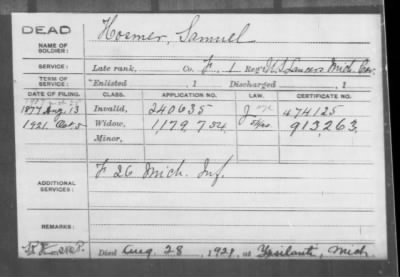 DEAD
NAME OF SOLDIER: Hosmer, Samuel
SERVICE: Late rank, Co. F, 1 Reg't U.S. Lancers Mich. Cav.
TERM OF SERVICE: Enlisted , 1 Discharged , 1
DATE OF FILING. CLASS. APPLICATION NO. LAW. CERTIFICATE NO.
1877 Aug. 13 Invalid, 240635 474125
1921. Oct. 5 Widow, 1179,734 913,263.
Minor,
ADDITIONAL SERVICES: F 26 Mich. Inf.
REMARKS:
Died Aug. 28, 1921, at Ypsilanti, Mich